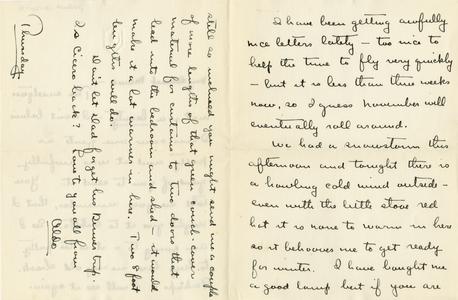 I have been getting awfully
nice letters lately – too nice to
help the time to fly very quickly
– but it is less than three weeks
now, so I guess November will
eventually roll around.
We had a snowstorm this
afternoon and tonight there is
a howling cold wind outside –
even with the little stove red
hot it is none to warm in here
so it behooves me to get ready
for winter. I have bought me
a good lamp but if you are
still so inclined you might send me a couple
of more lengths of that green couch-cover
material for curtains to two doors that
lead into the bedroom and shed – it would
make it a lot warmer in here. Two 8 foot
lengths will do.
Don't let Dad forget his Denver trip.
Is Cicero back? Love to you all from
Thursday